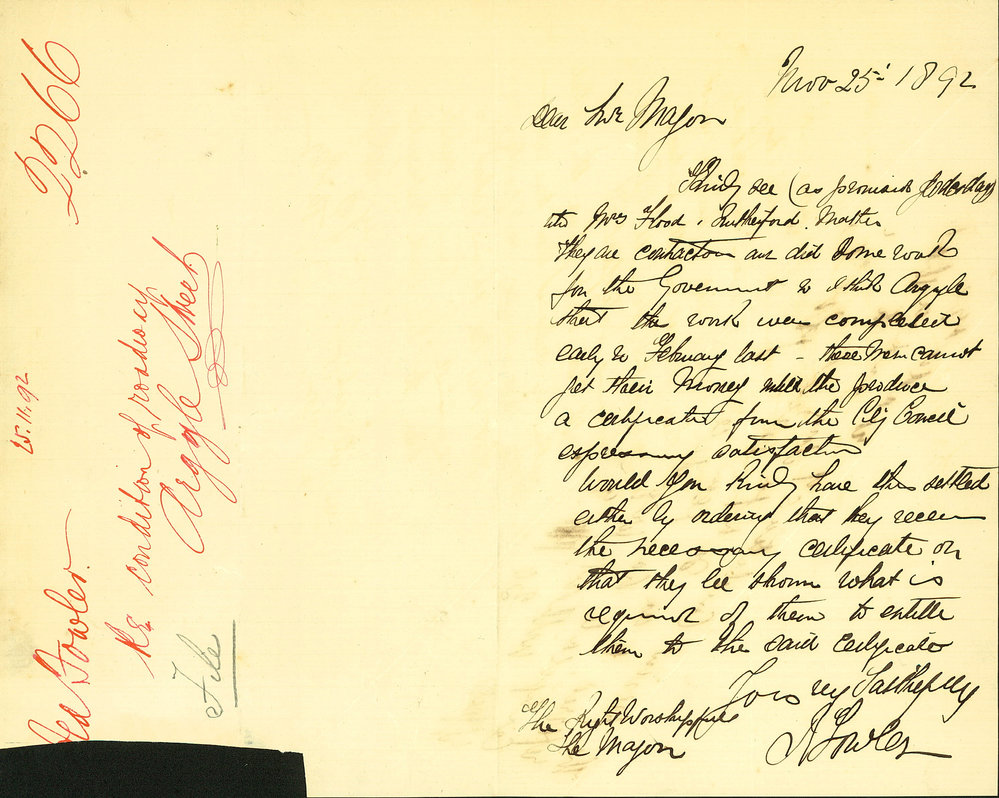 2266
25.11.92
Ald Fowler
Re condition of roadway
Argyle Street
File
Nov 25: 1892
Dear Mr Mayor
Kindly see (as promised yesterday)
into Mrs Flood & Rutherford. Matter
they are contractors and did some work
for the Government in I think Argyle
street the work were completed
early in February last – these men cannot
get their money until the produce
a certificate from the City Council
expressing satisfaction
Would you kindly have this settled
either by ordering that they receive
the necessary certificate or
that they be shown what is
required of them to entitle
them to the said certificate
Yours very faithfully
Fowler
The Right Worshipful
The Mayor